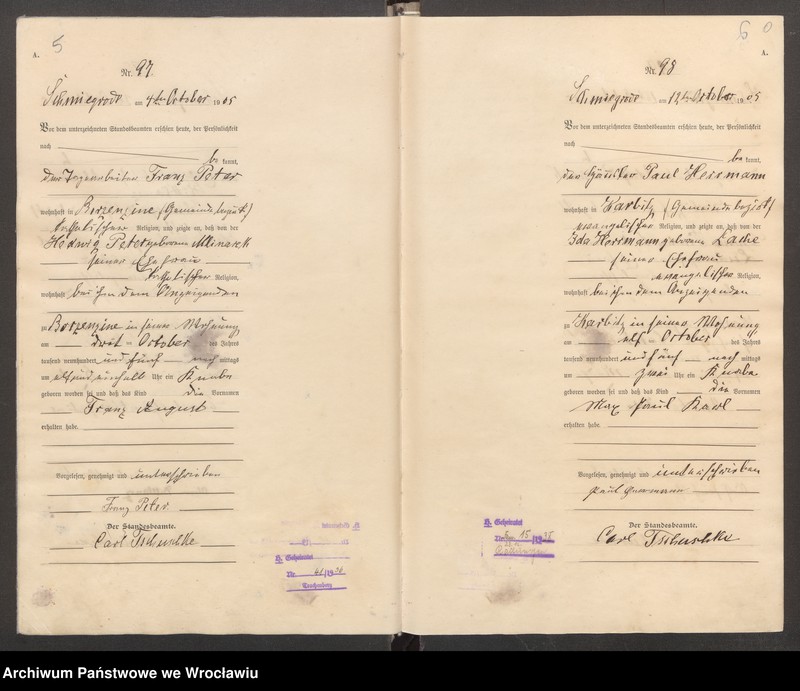 A.
5
Nr. 97
Schmiegrode am 4ten October 1905
Vor dem unterzeichneten Standesbeamten erschien heute, der Persönlichkeit
nach
be kannt,
der Tagearbeiter Franz Peter
wohnhaft in Borzenzine (Gemeindebezirk)
katholischer Religion, und zeigte an, daß von der
Hedwig Peter geborene Mlinarek
seiner Ehefrau
katholischer Religion,
wohnhaft bei ihm dem Anzeigenden
zu Borzenzine in seiner Wohnung
am drit= October des Jahres
tausend neunhundert und fünf nach mittags
um elf und einhalb Uhr ein Knabe
geboren worden sei und daß das Kind die Vornamen
Franz August
erhalten habe.
Vorgelesen, genehmigt und unterschrieben
Franz Peter
Der Standesbeamte.
Carl Tschuschke
H. Geheiratet
Nr. 41/19
6
A.
Nr. 98
Schmiegrode am 12ten October 1905
Vor dem unterzeichneten Standesbeamten erschien heute, der Persönlichkeit
nach
be kannt,
der Häusler Paul Herrmann
wohnhaft in Karbitz (Gemeindebezirk)
evangelischer Religion, und zeigte an, daß von der
Ida Herrmann geborene Lache
seiner Ehefrau
evangelischer Religion,
wohnhaft bei ihm dem Anzeigenden
zu Karbitz in seiner Wohnung
am elf= October des Jahres
tausend neunhundert und fünf nach mittags
um zwei Uhr ein Knabe
geboren worden sei und daß das Kind die Vornamen
Max Paul Karl
erhalten habe.
Vorgelesen, genehmigt und unterschrieben
Paul Herrmann
Der Standesbeamte.
Carl Tschuschke
H. Geheiratet
Archiwum Państwowe we Wrocławiu